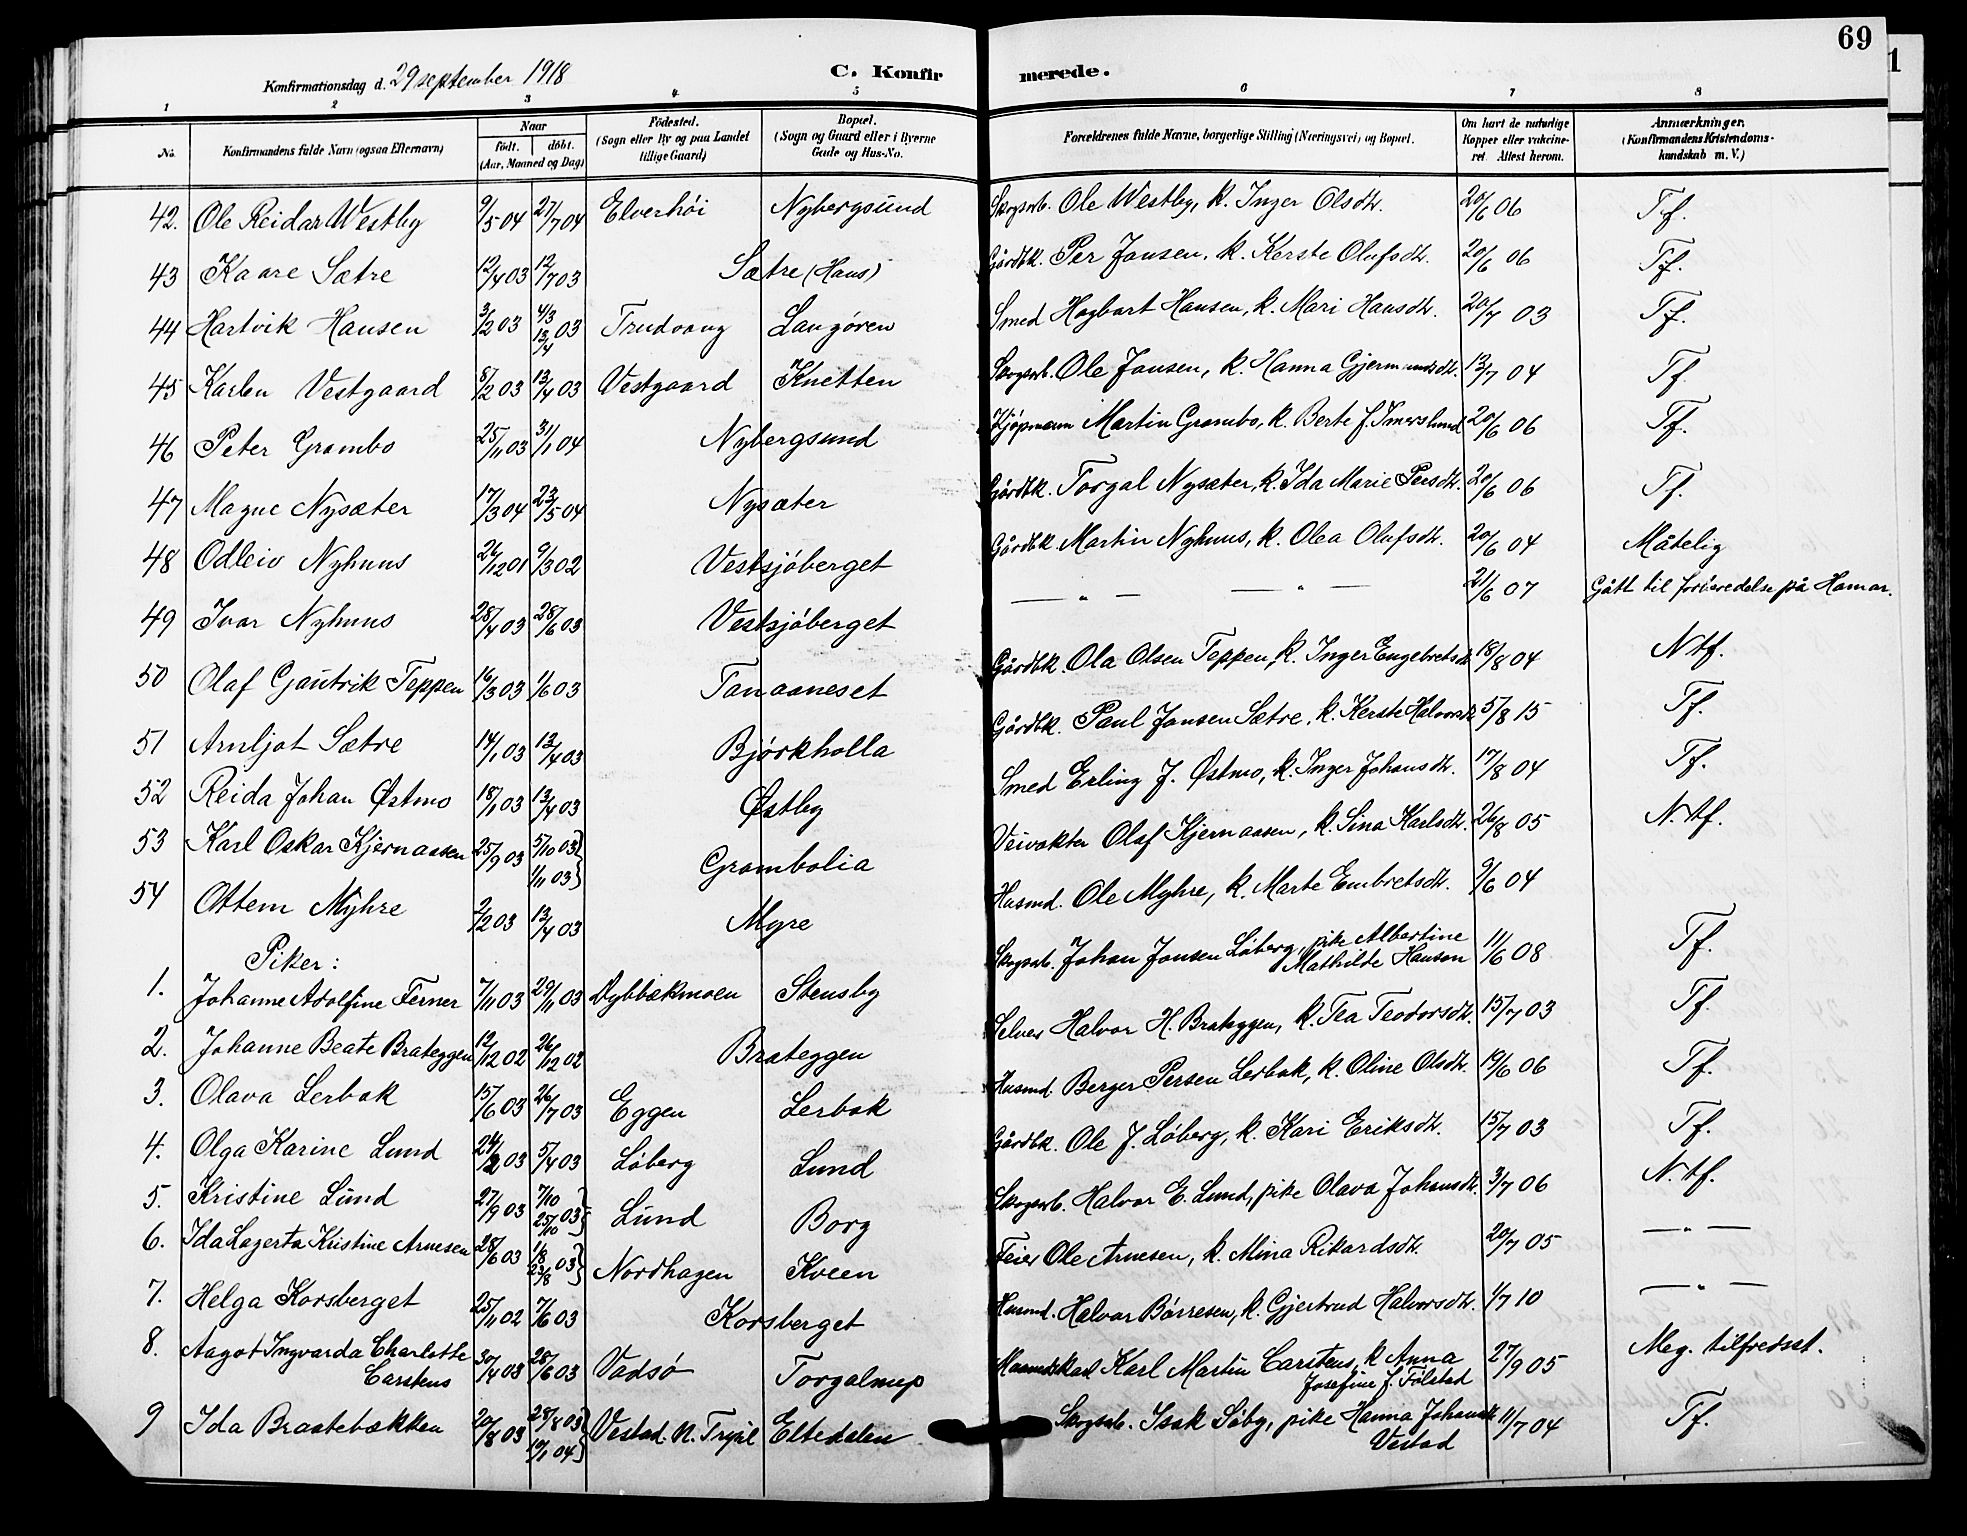 69
1
Konfirmationsdag d. 29 september 1918
C. Konfirmerede.
1 2 3 4 5 6 7 8
No. Konfirmandens fulde Navn (ogsaa Efternavn) Naar født. døbt. (Aar, Maaned og Dag) Fødested. (Sogn eller By og paa Landet tillige Gaard) Bopæl. (Sogn og Gaard eller i Byerne Gade og Hus-No. Forældrenes fulde Navne, borgerlige Stilling (Næringsvei) og Bopæl. Om havt de naturlige Kopper eller vakcineret Attest herom. Anmærkninger. (Konfirmandens Kristendomskundskab m. V.)
42. Ole Reidar Westby 9/5 04 27/7 04 Elverhöi Nybergsund Skogsarb. Ole Westby, k. Inger Olsdtr. 20/6 06 Tf.
43 Kaare Sætre 12/4 03 12/7 03 Sætre (Haus) Gårdbk. Per Jansen, k. Kerste Olufsdtr. 20/6 06 Tf.
44 Hartvik Hansen 3/2 03 4/3 13/4 03 Trudvang Langören Smed Hagbart Hansen, k. Mari Hansdtr. 20/7 03 Tf.
45 Karlen Vestgaard 8/2 03 13/4 03 Vestgaard Knetten Skogsarb. Ole Jansen, k. Hanna Gjermundsdtr. 13/7 04 Tf.
46 Peter Grambo 25/11 03 31/1 04 Nybergsund Kjöpmann Martin Grambo, k. Berte f. Imerslund 20/6 06 Tf.
47 Magne Nysæter 17/3 04 23/5 04 Nysæter Gårdbk. Torgal Nysæter, k. Ida Marie Persdtr. 20/6 06 Tf.
48 Odleiv Nyhuus 26/12 01 9/3 02 Vestsjöberget Gårdbk. Martin Nyhuus, k. Olea Olufsdtr. 20/6 04 Måtelig
49 Ivar Nyhuus 28/4 03 28/6 03 Vestsjöberget — " — — " — 21/6 07 Gått til forberedelse på Hamar.
50 Olaf Gautrik Teppen 16/3 03 1/6 03 Tanaaneset Gårdbk. Ola Olsen Teppen, k. Inger Engebretsdtr. 18/8 04 Ntf.
51 Arnljot Sætre 14/1 03 13/4 03 Bjørkholla Gårdbk. Paul Jansen Sætre, k. Kerste Halvorsdtr. 5/8 15 Tf.
52 Reida Johan Østmo 18/1 03 13/4 03 Østby Smed Erling J. Østmo, k. Inger Johansdtr. 17/8 04 Tf.
53 Karl Oskar Kjernaasen 25/9 03 5/10 03 1/11 03 } Grambolia Veivokter Olaf Kjernaasen, k. Sina Karlsdtr. 26/8 05 N. tf.
54 Ottem Myhre 2/2 03 13/4 03 Myre Husmd. Ole Myhre, k. Marte Embretsdtr. 9/6 04
Piker:
1. Johanne Adolfine Ferner 7/11 03 29/11 03 Dybbækmoen Stensby Skogsarb. Johan Jansen Löberg, pike Albertine Mathilde Hansen 11/6 08 Tf.
2. Johanne Beate Brateggen 12/12 02 26/12 02 Brateggen Selveier Halvor H. Brateggen, k. Tea Teodorsdtr. 15/7 03 Tf.
3. Olava Lerbak 15/6 03 26/7 03 Eggen Lerbak Husmd. Berger Persen Lerbak, k. Oline Olsdtr. 19/6 06 Tf.
4. Olga Karine Lund 24/2 03 5/4 03 Löberg Lund Gårdbk. Ole J. Löberg, k. Kari Eriksdtr. 15/7 03 Tf.
5. Kristine Lund 27/9 03 7/10 25/10 03 } Lund Borg Skogsarb. Halvor E. Lund, pike Olava Johansdtr. 3/7 06 N. tf.
6. Ida Lagerta Kristine Arnesen 28/6 03 1/8 23/8 03 } Nordhagen Kveen Feier Ole Arnesen, k. Mina Rikardsdtr. 20/7 05 — " —
7. Helga Korsberget 25/11 02 7/6 03 Korsberget Husmd. Halvor Børresen, k. Gjertrud Halvorsdtr. 1/7 10 — " —
8. Aagot Ingvarda Charlotte Carstens 30/4 03 28/6 03 Vadsø Torgalmup Karl Martin Carstens, k Anna Josefine f. Fölstad 27/9 05 Meg. tilfredsst.
9 Ida Braatebækken 20/8 03 28/8 03 10/1 04 } Vestad N. Trysil Eltedalen Skogsarb. Isak Söby, pike Hanna Johansdtr Vestad 11/7 04 Tf.